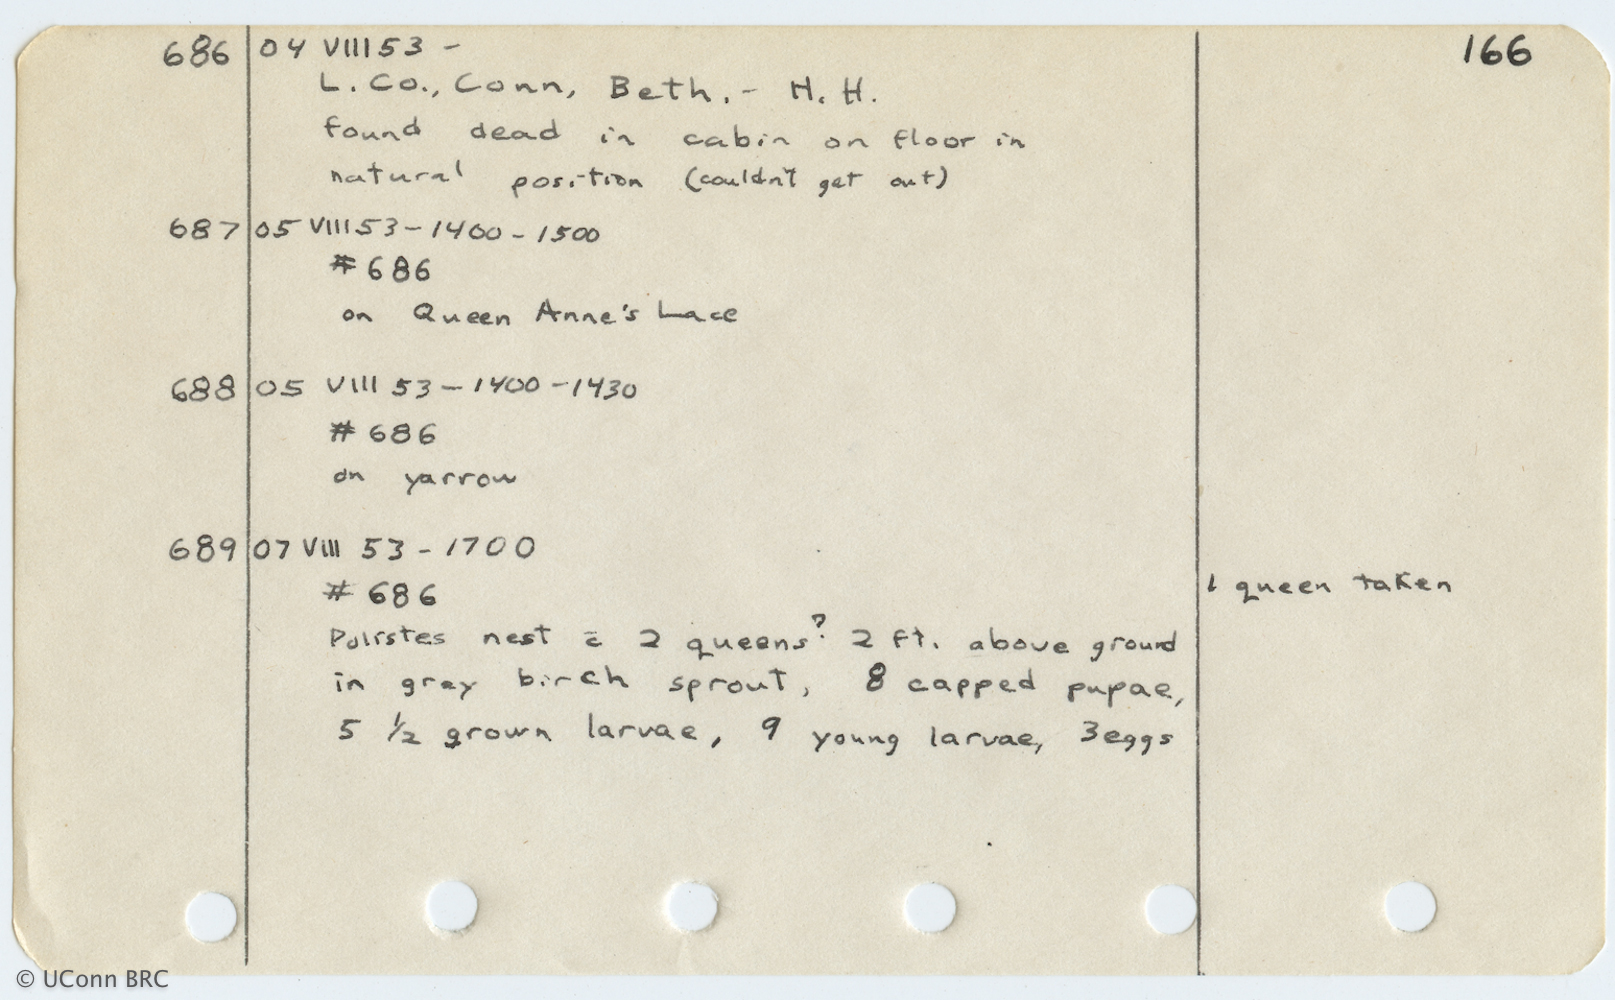 166
686 04 VIII 53 -
L. Co., Conn, Beth. - H. H.
found dead in cabin on floor in
natural position (couldn't get out)
687 05 VIII 53 - 1400 - 1500
# 686
on Queen Anne's Lace
688 05 VIII 53 - 1400 - 1430
# 686
on yarrow
689 07 VIII 53 - 1700
# 686
1 queen taken
Polistes nest c̄ 2 queens? 2 ft. above ground
in grey birch sprout, 8 capped pupae,
5 1/2 grown larvae, 9 young larvae, 3 eggs
© UConn BRC